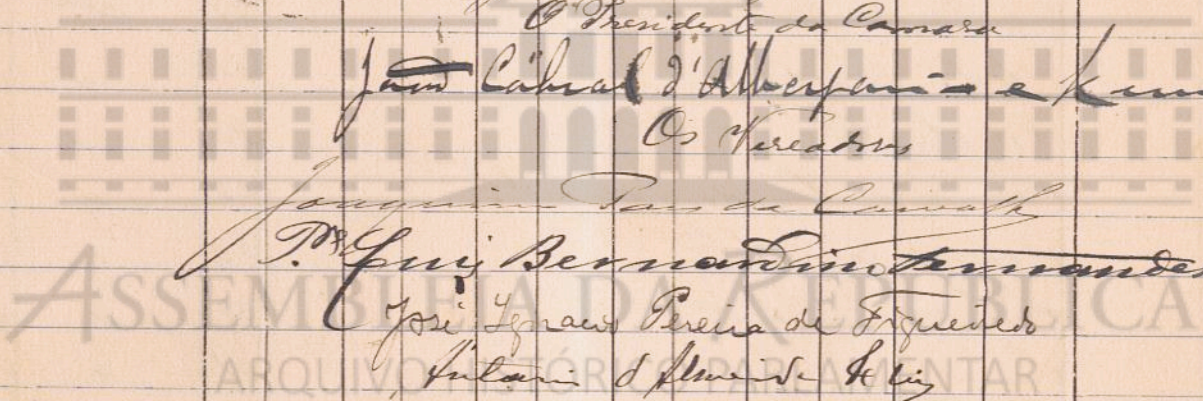 O Presidente da Camara
João Cabral d'Albergaria e
Os Vereadores
Joaquim Paes da Carvalho
P.e Luiz Bernardino Fernandes
José Ignacio Pereira de Figueiredo
Antonio d'Almeida
ASSEMBLEIA DA REPÚBLICA
ARQUIVO HISTÓRICO PARLAMENTAR